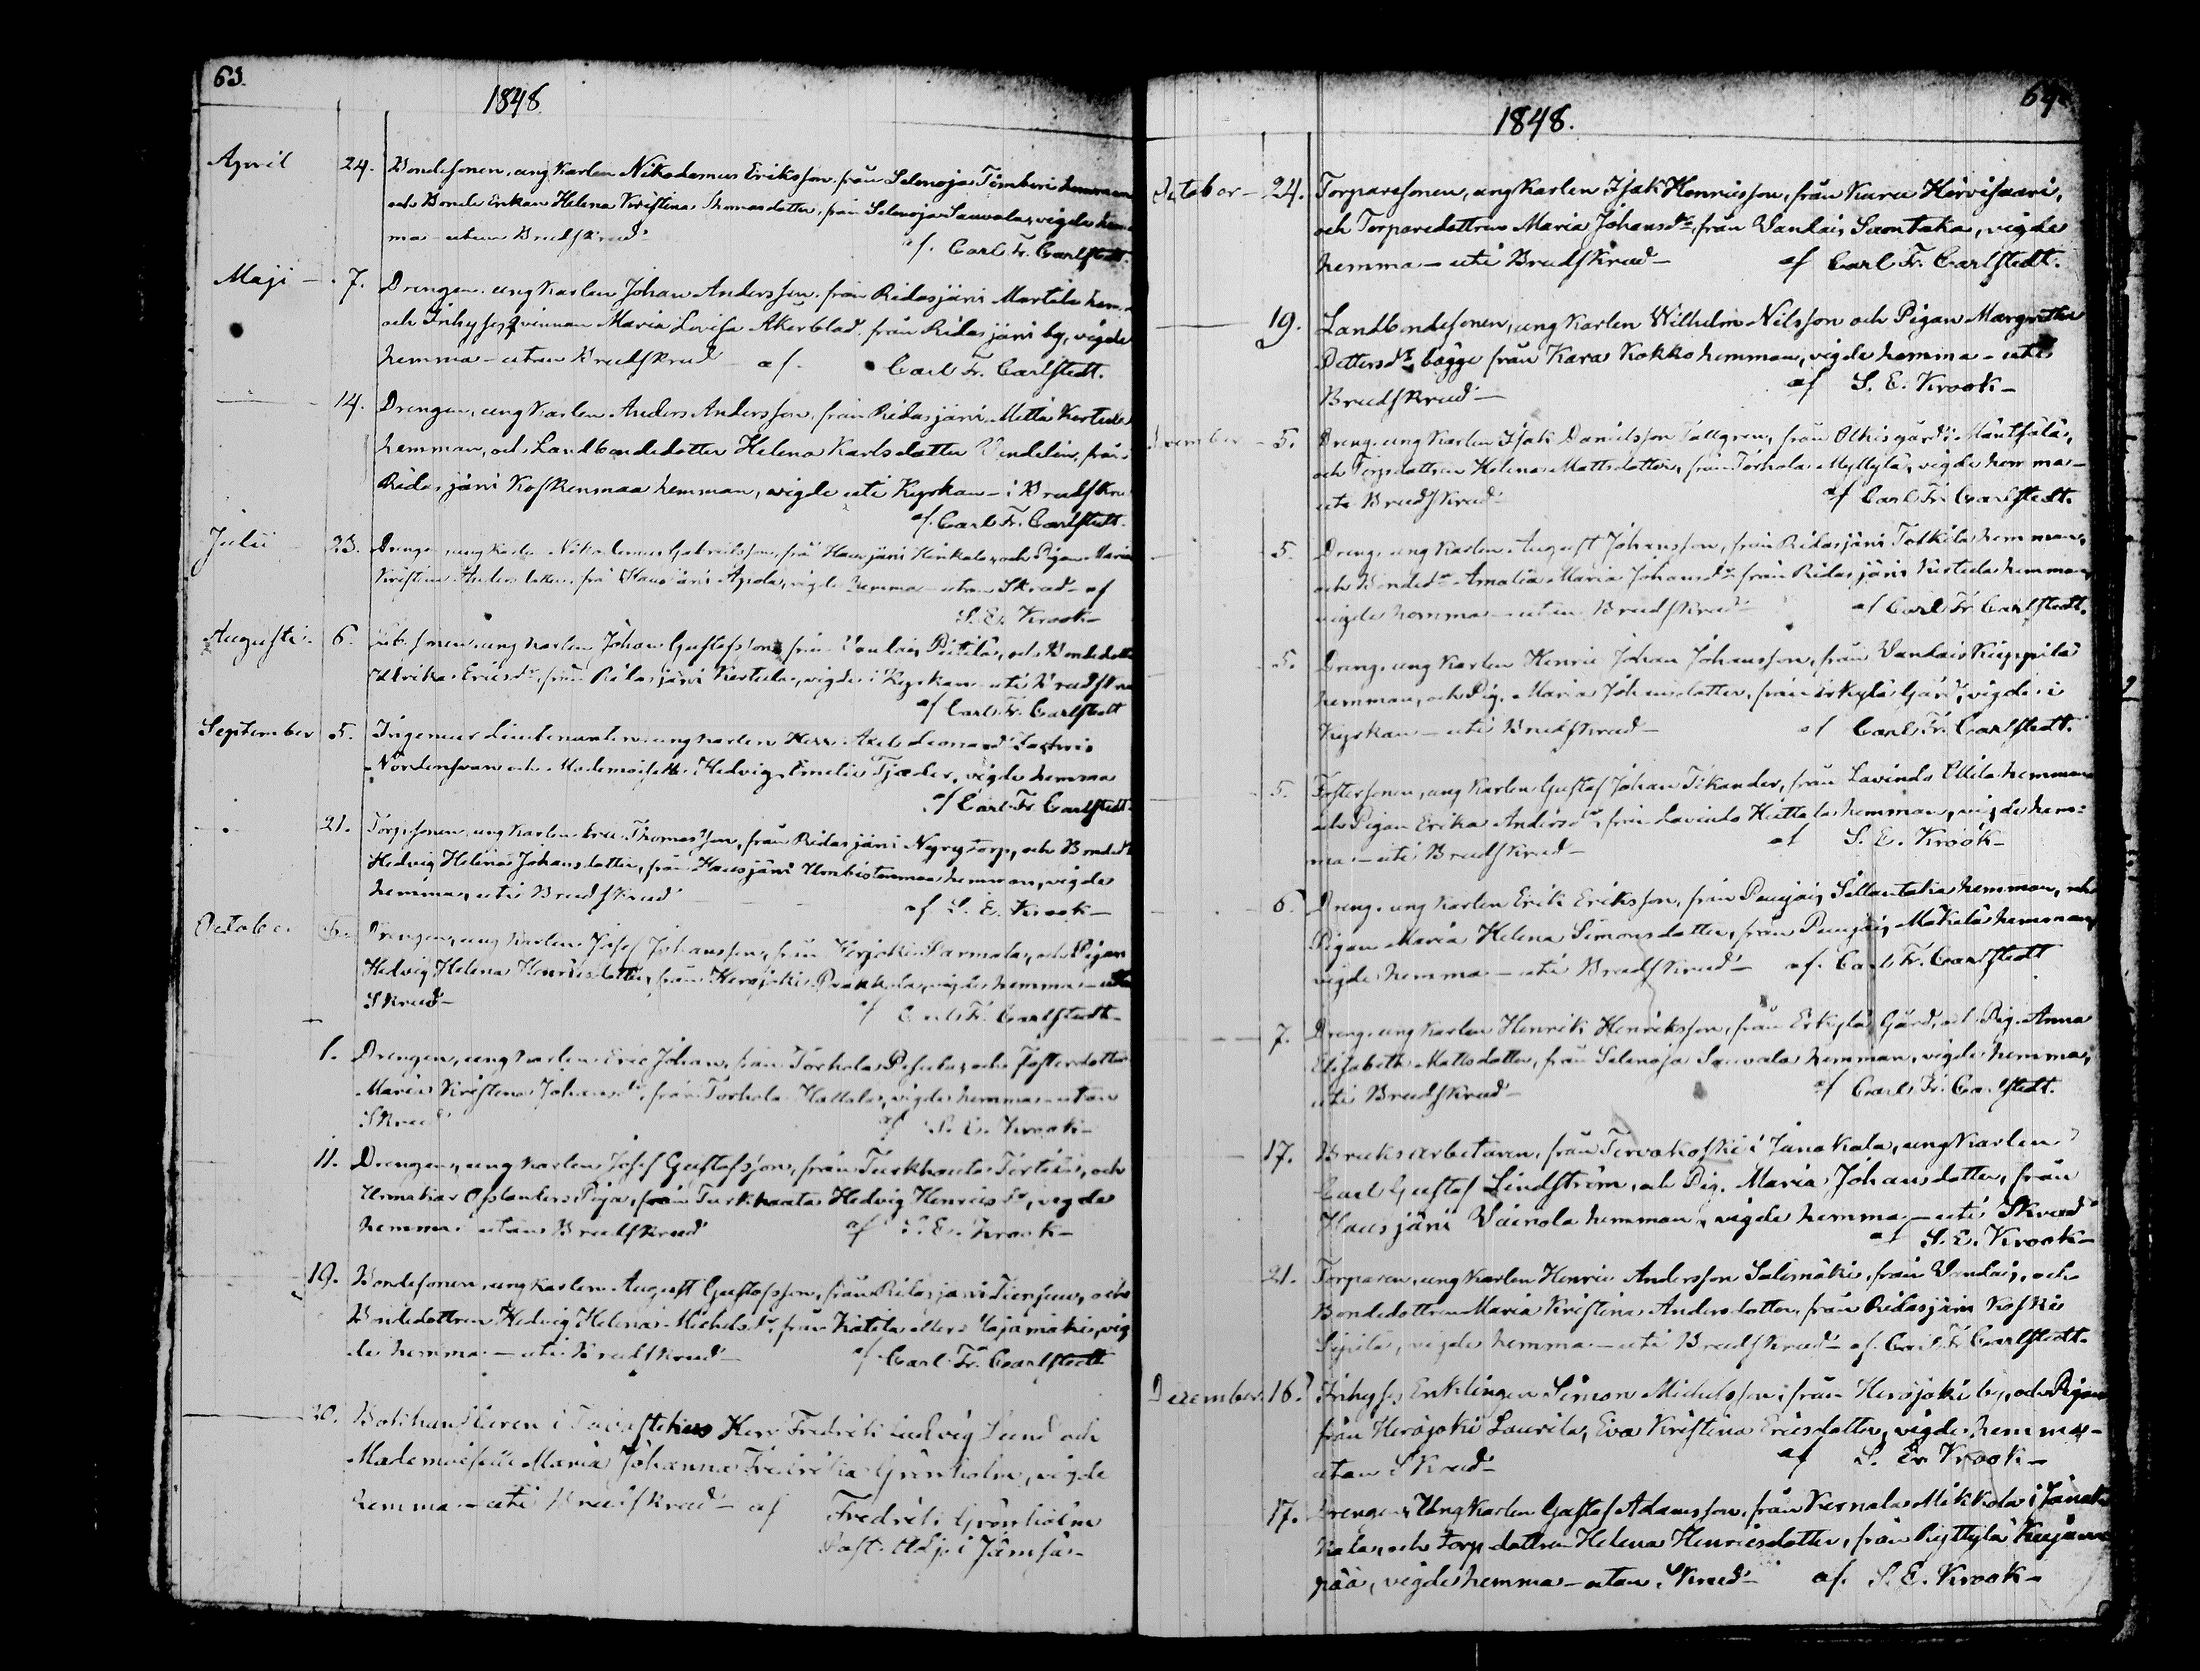 63.
1848.
April 24. Bondesonen, ung Karlen Nikodemus Eriksson från Selenoja Tömberi hemman
och Bonde Enkan Helena Kristina Thomasdotter, från Selenoja Sauvala, vigde hem-
ma - utan Brudskrud
af. Carl Fr. Carlstedt.
Maji - 7. Drengen ung Karlen Johan Andersson från Ridasjärvi Martila hem.
och Inhyses qvinnan Maria Lovisa Åkerblad, från Ridasjärvi by, vigde
hemma - utan Brudskrud af. Carl Fr. Carlstedt.
14. Drengen, ung Karlen Anders Andersson, från Ridasjärvi Kertula
hemman, och Landbondedotter Helena Karlsdotter Vendelin, från
Ridasjärvi Koskenmaa hemman, vigde uti Kyrkan - i Brudskru
af. Carl Fr. Carlstedt.
Julii 23. Drengen ung Karlen Nikodemus Gabrielsson, frå Hausjärvi och Pigan Maria
Kristina Andersdotter, frå Hausjärvi vigde hemma - utan Skrud - af
S. E. Krook -
Augusti 6. sonen ung Karlen Johan Gustafsson från Vantais och Bondedott
Ulrika Ericsdr, från Ridasjärvi Kertula, vigde i Kyrkan - uti Brudskru
af Carl Fr. Carlstedt
September 5. Ingenieur Lieutenanten ung Karlen Herr Axel Leonard
Nordensvan och Mademoiselle Hedvig Emelie Tjæder, vigde hemma
af Carl Fr. Carlstedt.
21. Torpsonen, ung Karlen Eric Thomasson, från Ridasjärvi torp, och Bondedr
Hedvig Helena Johansdotter, från Hausjärvi hemman, vigde
hemma, uti Brudskrud
af S. E. Krook -
October Drengen, ung Karlen Josef Johansson, från Sarmala, och Pigan
Hedvig Helena Henricsdotter, från Herajoki Prakkala, vigde hemma - utan
Skrud -
af Carl Fr. Carlstedt -
1. Drengen, ung Karlen Eric Johan, från Torhola och Fosterdotter
Maria Kristina Johansdr, från Torhola vigde hemma - utan
Skrud af S. E. Krook -
11. Drengen, ung Karlen Josef Gustafsson, från Turkhauta och
Piga, från Turkhauta Hedvig Henricsdr, vigde
hemma utan Brudskrud af S. E. Krook -
19. Bondesonen, ung Karlen August Gustafsson, från Ridasjärvi och
Bondedottren Hedvig Helena Michelsdr, från vig
de hemma - uti Brudskrud - af Carl Fr. Carlstedt
20. Bokhandlaren i Tavastehus Herr Fredrik Ludvig Lund och
Mademoiselle Maria Johanna Fredrika Grönholm, vigde
hemma - uti Brudskrud - af Fredrik Grönholm
Past. Adj. i Jämsä -
64.
1848.
October - 24. Torparesonen, ung Karlen Isak Henricsson, från Kara Hirvisaari,
och Torparedottren Maria Johansdr, från Vantais Suontaka, vigde
hemma - uti Brudskrud - af Carl Fr. Carlstedt.
19. Landbondesonen, ung Karlen Wilhelm Nilsson och Pigan Margretha
Pettersdr, bägge från Kara Kokko hemman, vigde hemma - uti
Brudskrud - af S. E. Krook -
November - 5. Dreng. ung Karlen Isak Danielsson Tallgren, från Olkis gård i Mäntsälä,
och Torpdottren Helena Mattsdotter, från Torhola Myllylä, vigde hemma -
uti Brudskrud af Carl Fr. Carlstedt.
5. Dreng. ung Karlen August Johansson, från Ridasjärvi hemman,
och Bondedr Amalia Maria Johansdr från Ridasjärvi Kertula hemman,
vigde hemma - utan Brudskrud af Carl Fr. Carlstedt.
5. Dreng. ung Karlen Henric Johan Johansson, från Vantais
hemman, och Pig. Maria Johansdotter, från Erkylä Gård, vigde i
Kyrkan - uti Brudskrud - af Carl Fr. Carlstedt.
5. Fostersonen, ung Karlen Gustaf Johan Tikander, från Lavinda Ollila hemman
och Pigan Erika Andersdr, från Lavinda hemman, vigde hem-
ma - uti Brudskrud - af S. E. Krook -
6. Dreng. ung Karlen Erik Eriksson, från Punjais Sillantaka hemman, och
Pigan Maria Helena Simonsdotter, från Punjais Mäkelä hemman,
vigde hemma - uti Brudskrud - af. Carl Fr. Carlstedt
7. Dreng. ung Karlen Henrik Henriksson, från Erkylä Gård, och Pig. Anna
Elisabeth Mattsdotter, från Selenoja Sauvala hemman, vigde hemma,
uti Brudskrud - af Carl Fr. Carlstedt.
17. Bruksarbetaren, från Tervakoski i Janakala, ung Karlen
Carl Gustaf Lindström, och Pig. Maria Johansdotter, från
Hausjärvi Väinola hemman, vigde hemma - uti Skrud
af S. E. Krook -
21. Torparen, ung Karlen Henric Andersson Salomäki, från Vantais, och
Bondedottren Maria Kristina Andersdotter, från Ridasjärvi Koski
vigde hemma - uti Brudskrud - af. Carl Fr. Carlstedt.
December 16. Inhyses Enklingen Simon Michelsson, från Herajoki by, och Pigan
från Herajoki Laurila, Eva Kristina Ericsdotter, vigde hemma -
utan Skrud - af S. E. Krook -
17. Drengen, Ung Karlen Gustaf Adamsson, från Kernala Mikkola i Janak-
kala, och Torpdottren Helena Henricsdotter, från Ryttylä
pää, vigde hemma - utan Skrud - af. S. E. Krook -